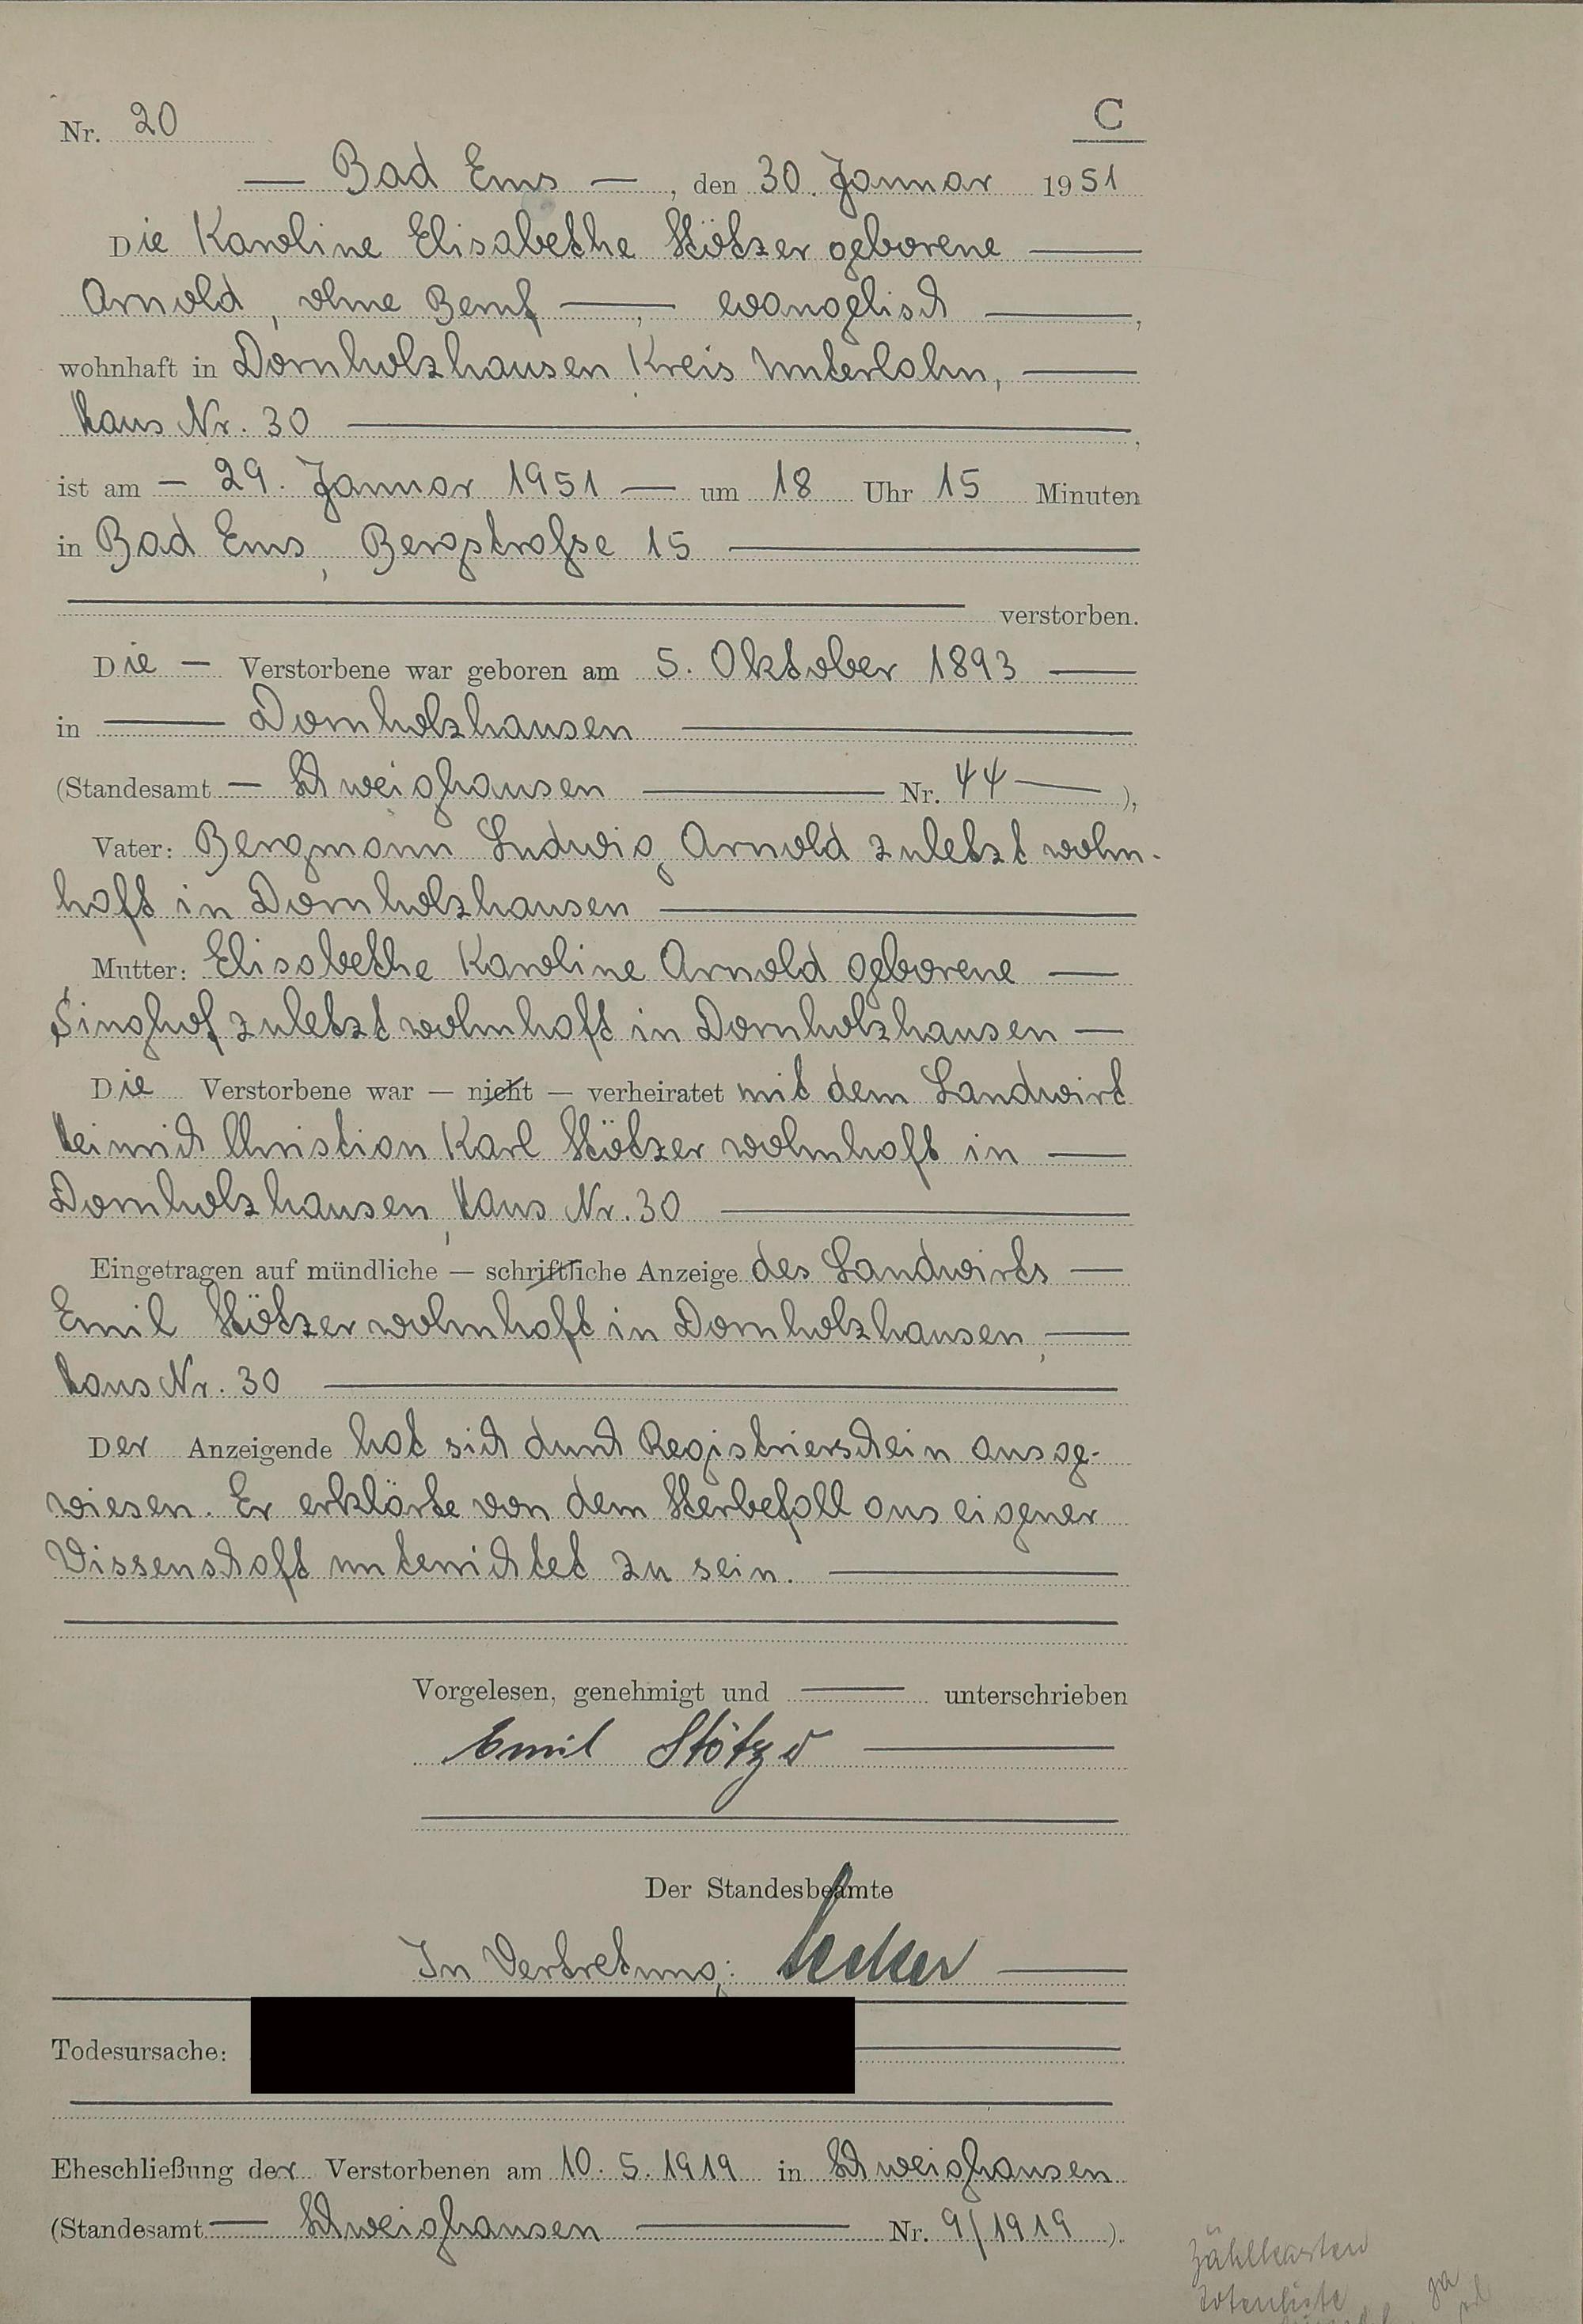 Nr. 20
C
— Bad Ems —, den 30. Januar 1951
Die Karoline Elisabethe Stötzer geborene —
Arnold, ohne Beruf —, — evangelisch —,
wohnhaft in Dornholzhausen Kreis Unterlahn, —
Haus Nr. 30 —,
ist am — 29. Januar 1951 — um 18 Uhr 15 Minuten
in Bad Ems, Bergstraße 15 —
— verstorben.
Die — Verstorbene war geboren am 5. Oktober 1893 —
in — Dornholzhausen —
(Standesamt — Schweighausen — Nr. 44 — ),
Vater: Bergmann Ludwig Arnold zuletzt wohn-
haft in Dornholzhausen —
Mutter: Elisabethe Karoline Arnold geborene —
Singhof zuletzt wohnhaft in Dornholzhausen —
Die Verstorbene war — nicht — verheiratet mit dem Landwirt
Heinrich Christian Karl Stötzer wohnhaft in —
Dornholzhausen, Haus Nr. 30 —
Eingetragen auf mündliche — schriftliche Anzeige des Landwirts —
Emil Stötzer wohnhaft in Dornholzhausen, —
Haus Nr. 30 —
Der Anzeigende hat sich durch Registrierschein ausge-
wiesen. Er erklärte von dem Sterbefall aus eigener
Wissenschaft unterrichtet zu sein. —
Vorgelesen, genehmigt und — unterschrieben
Emil Stötzer —
Der Standesbeamte
In Vertretung: —
Todesursache:
Eheschließung der Verstorbenen am 10. 5. 1919 in Schweighausen
(Standesamt — Schweighausen — Nr. 9/1919 ).
Zählkarten
Totenliste ja